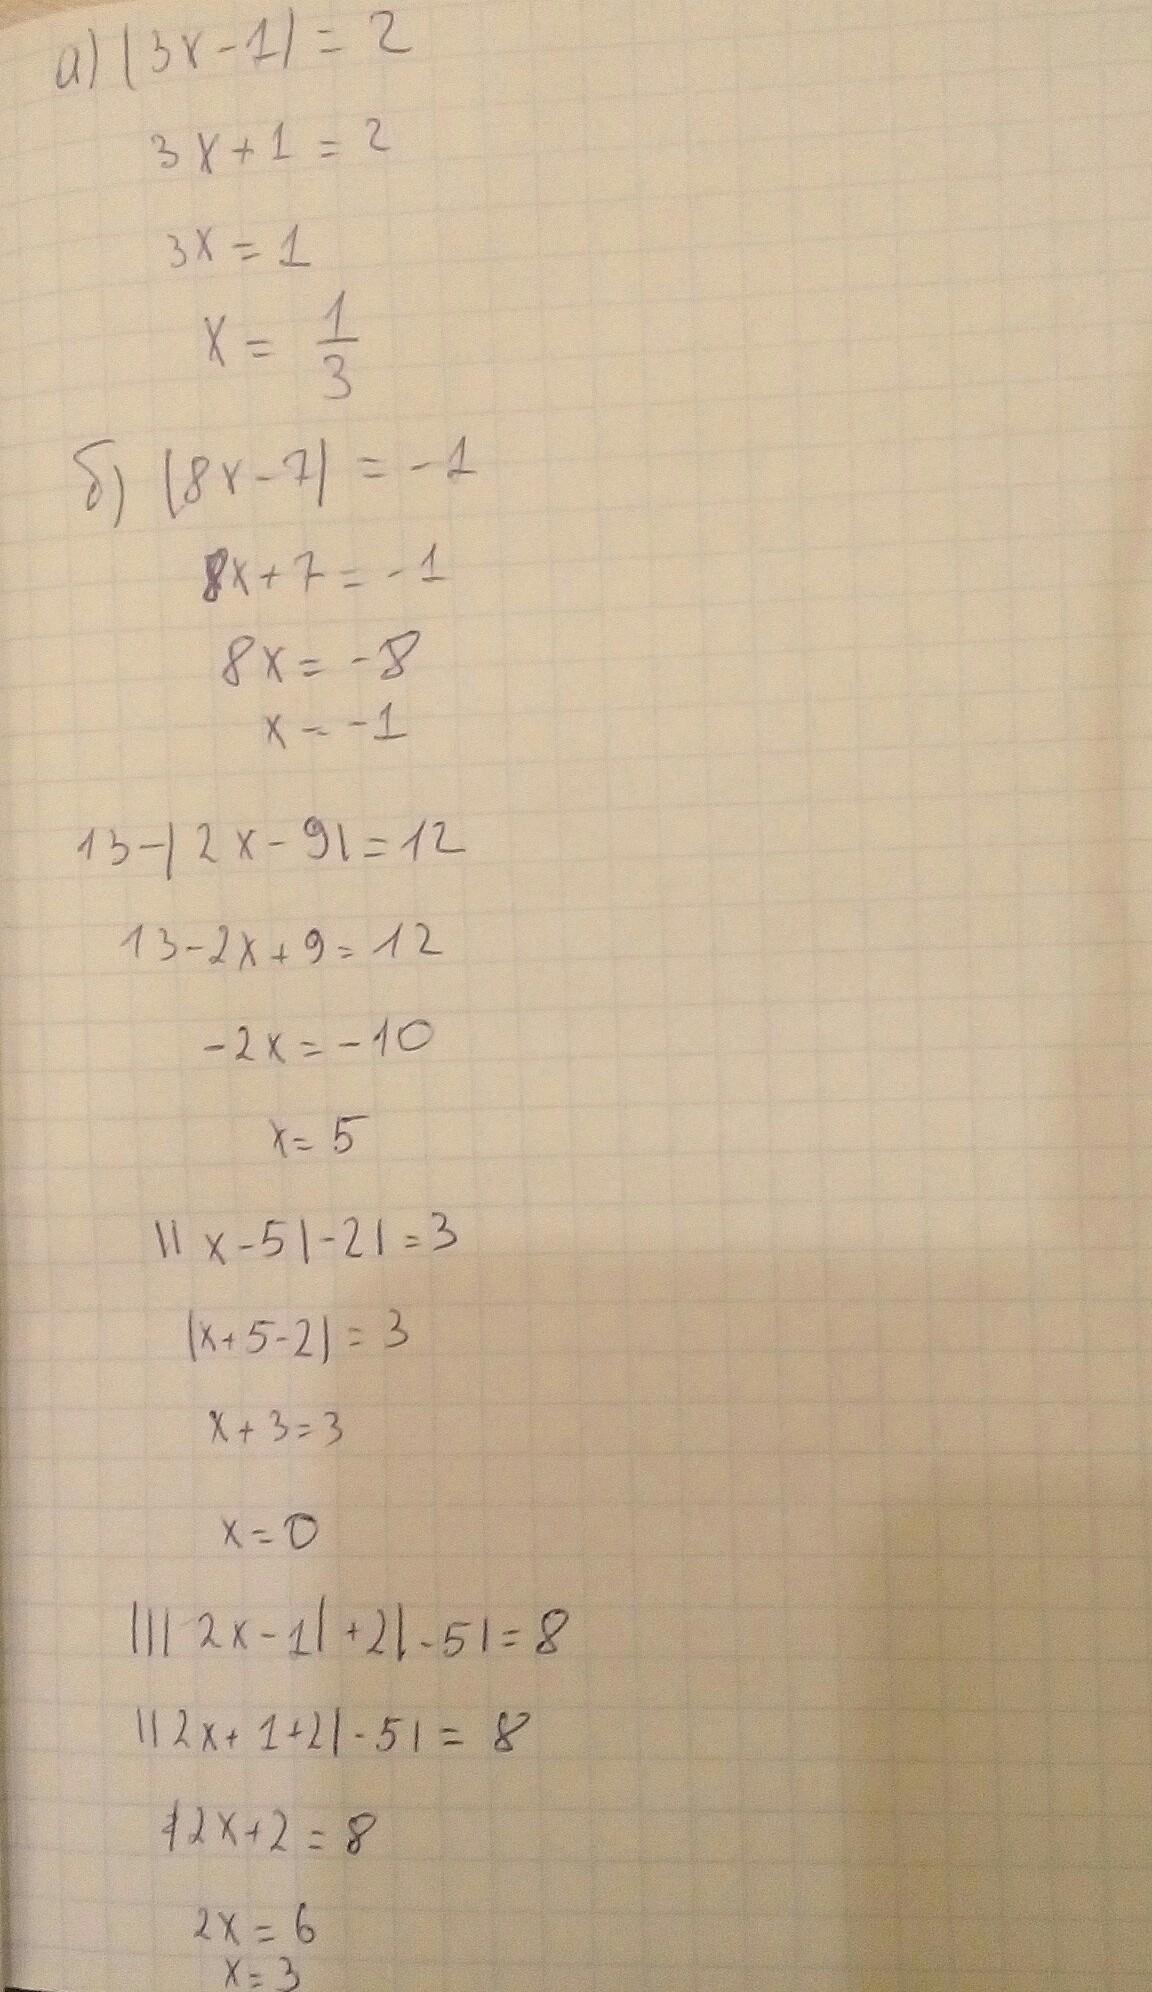 а) |3x-1| = 2
3x+1 = 2
3x = 1
x = 1/3
б) |8x-7| = -1
8x+7 = -1
8x = -8
x = -1
13-|2x-9|=12
13-2x+9=12
-2x=-10
x=5
||x-5|-2|=3
|x+5-2|=3
x+3=3
x=0
|||2x-1|+2|-5|=8
||2x+1+2|-5|=8
2x+2=8
2x=6
x=3